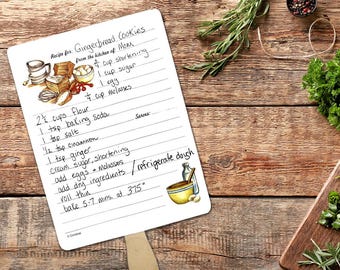 Recipe for: Gingerbread Cookies
from the kitchen of: Mom
3/4 cup shortening
1 cup sugar
1 egg
1/4 cup molasses
2 1/4 cups flour
Serves:
1 tsp baking soda
1 tsp salt
1/2 tsp cinnamon
1 tsp ginger
cream sugar, shortening
add eggs + molasses
add dry ingredients / refrigerate dough
roll thin
bake 5-7 mins. at 375°